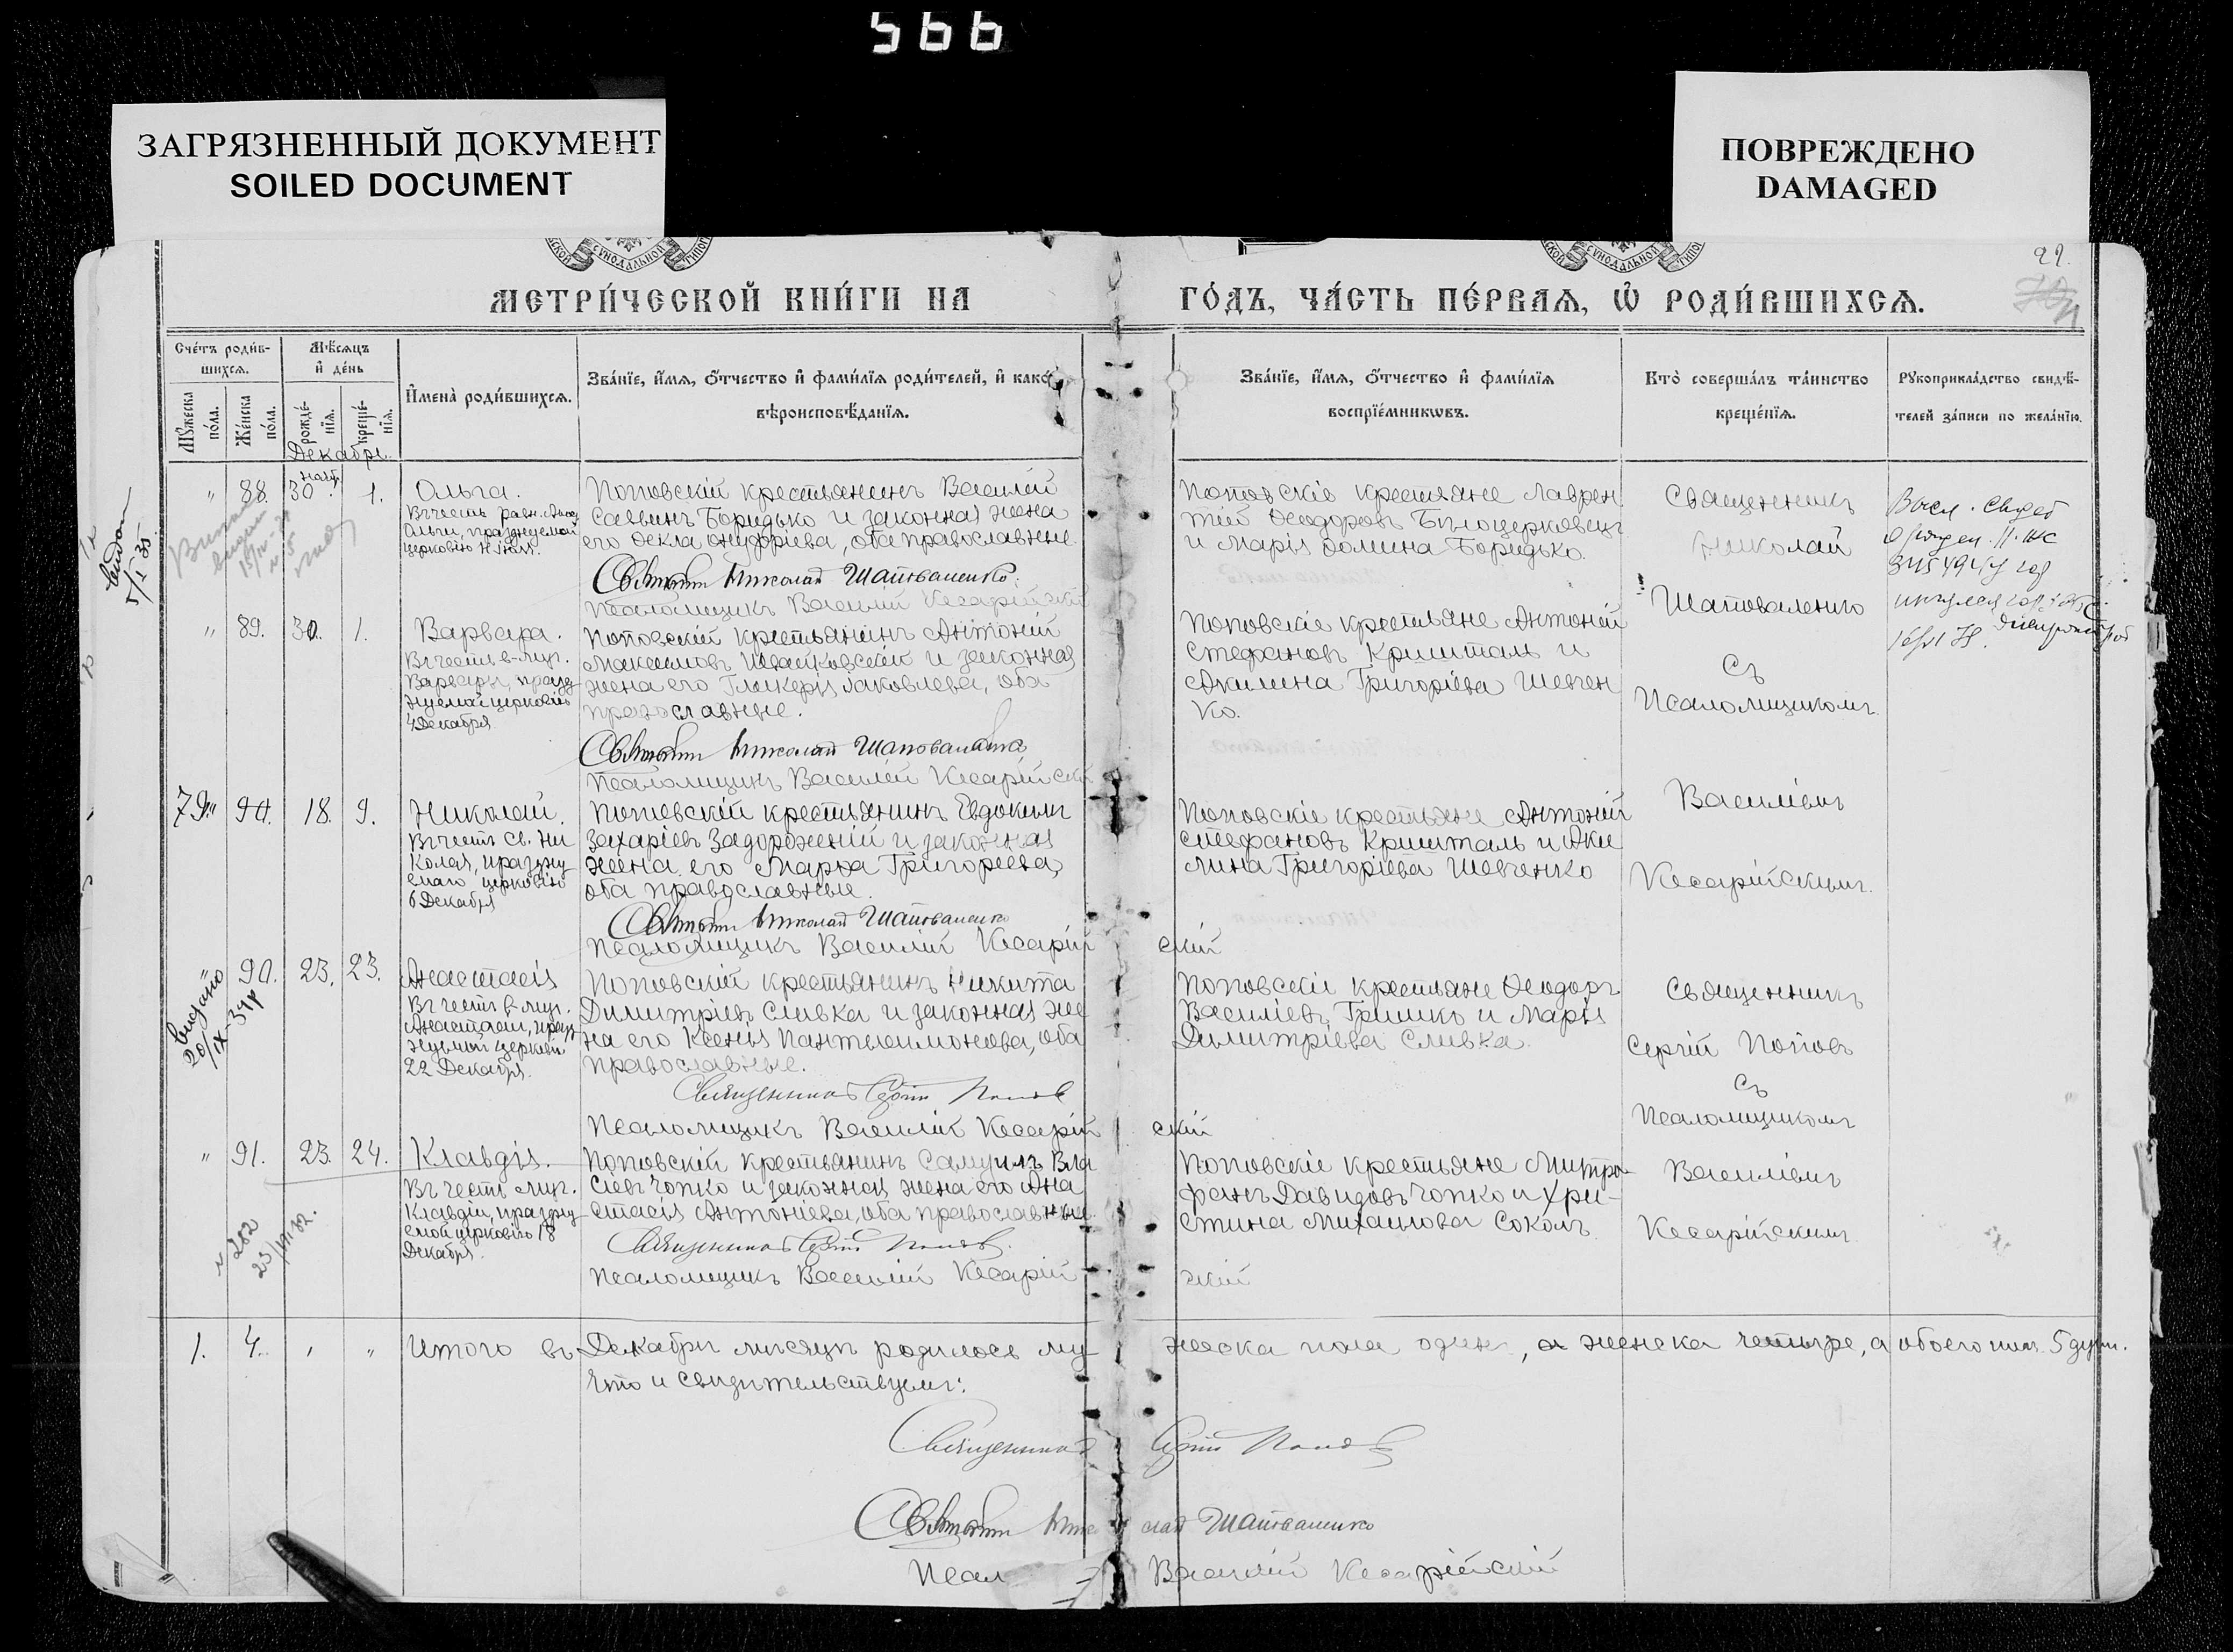 566
ЗАГРЯЗНЕННЫЙ ДОКУМЕНТ
SOILED DOCUMENT
ПОВРЕЖДЕНО
DAMAGED
МЕТРИ́ЧЕСКОЙ КНИ́ГИ НА
ГО́ДЪ, ЧА́СТЬ ПЕ́РВАѦ, Ѡ҆ РОДИ́ВШИХСѦ.
Сче́тъ роди́в-
шихсѧ.
Мꙋ́жеска
по́ла.
Же́нска
по́ла.
Мѣ́сѧцъ
и҆ де́нь
рожде́-
нїѧ.
креще́-
нїѧ.
Декабрь.
И҆мена̀ роди́вшихсѧ.
Зва́нїе, и҆́мѧ, ѻ҆́тчество и҆ фами́лїѧ роди́телей, и҆ како́
вѣроисповѣ́данїѧ.
Зва́нїе, и҆́мѧ, ѻ҆́тчество и҆ фами́лїѧ
воспрїе́мникѡвъ.
Кто̀ соверша́лъ та́инство
креще́нїѧ.
Рꙋкоприкла́дство свидѣ́-
телей за́писи по жела́нїю.
" 88. 30 нояб. 1.
Ольга.
Въ честь равн. Апос.
Ольги, празднуемой
церковію 11 Іюля.
Поповскій крестьянинъ Василій
Саввинъ Боридько и законная жена
его Ѳекла Онуфріева, оба православные.
Николай Шаповаленко.
Псаломщикъ Василій Кесарійскій
Поповскіе крестьяне Лаврен
тій Ѳеодоровъ Бѣлоцерковецъ
и Марія Боридько.
Священникъ
Николай
Шаповаленко
съ
Псаломщикомъ
Василіемъ
Кесарійскимъ.
" 89. 30. 1.
Варвара.
Въ честь в-муч.
Варвары, празд
нуемой церковію
4 Декабря
Поповскій крестьянинъ Антоній
Максимовъ и законная
жена его Гликерія Іаковлева, оба
православные.
Николай Шаповаленко
Псаломщикъ Василій Кесарійскій
Поповскіе крестьяне Антоній
Стефановъ Кришталь и
Акилина Григоріева Шевчен
ко.
79. " 18. 9.
Николай.
Въ честь св. Ни
колая, праздну
емаго церковію
6 Декабря
Поповскій крестьянинъ Евдокимъ
Захаріевъ Задорожній и законная
жена его Марѳа Григоріева,
оба православные.
Николай Шаповаленко
Псаломщикъ Василій Кесарійскій
Поповскіе крестьяне Антоній
Стефановъ Кришталь и Аки
лина Григоріева Шевченко
" 90. 23. 23.
Анастасія
Въ честь в-муч.
Анастасіи, празд
нуемой церковію
22 Декабря.
Поповскій крестьянинъ Никита
Димитріевъ Сливка и законная же
на его Ксенія Пантелимонова, оба
православные.
Священникъ Сергій Поповъ
Псаломщикъ Василій Кесарійскій
Поповскіе крестьяне Ѳеодоръ
Василіевъ Гришко и Марія
Димитріева Сливка.
Священникъ
Сергій Поповъ
съ
Псаломщикомъ
Василіемъ
Кесарійскимъ
" 91. 23. 24.
Клавдія.
Въ честь муч.
Клавдіи, праздну
емой церковію 18
Декабря.
Поповскій крестьянинъ Самуилъ Вла
сіевъ Чопко и законная жена его Ана
стасія Антоніева, оба православные.
Священникъ Сергій Поповъ.
Псаломщикъ Василій Кесарійскій
Поповскіе крестьяне Митро
фанъ Давидовъ Чопко и Хри-
стина Михаилова Соколъ.
1. 4. " "
Итого въ Декабрѣ мѣсяцѣ родилось мужеска пола одинъ, а женска четыре, а обоего пола 5 душъ.
Что и свидѣтельствуемъ:
Священникъ Сергій Поповъ
Николай Шаповаленко
Псал Василій Кесарійскій